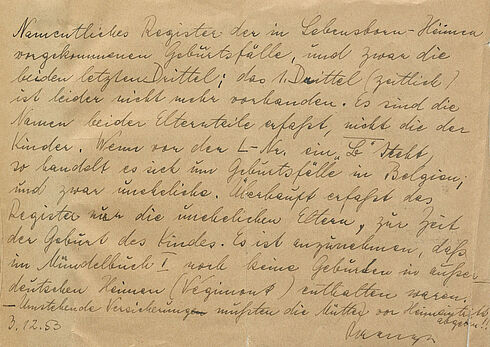 Namentliches Register der in Lebensborn-Heimen
vorgekommenen Geburtsfälle, und zwar die
beiden letzten Drittel; das 1. Drittel (zeitlich)
ist leider nicht mehr vorhanden. Es sind die
Namen beider Elternteile erfaßt, nicht die der
Kinder. Wenn vor der L-Nr. ein „B" steht
so handelt es sich um Geburtsfälle in Belgien;
und zwar uneheliche. Überhaupt erfasst das
Register nur die unehelichen Eltern, zur Zeit
der Geburt des Kindes. Es ist anzunehmen, daß
im Mündelbuch I noch keine Geburten in außer-
deutschen Heimen (Végimont) enthalten waren.
- Umstehende Versicherung mußten die Mütter vor
abgeben!!
3.12.53